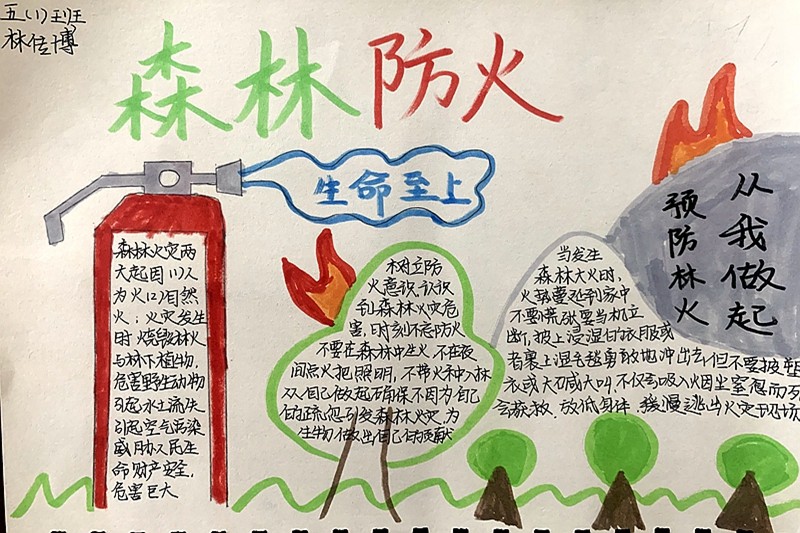 五(1)班
林佳博
森林防火
生命至上
预防林火
从我做起
森林火灾两
大起因(1)人
为火(2)自然
火；火灾发生
时烧毁林火
与林下植物，
危害野生动物
引起水土流失
引起空气污染
威胁人民生
命财产安全，
危害巨大
树立防
火意识，认识
到森林火灾危
害，时刻不忘防火
不要在森林中生火，不在夜
间点火把照明，不带火种入林
从自己做起确保不因为自己
的疏忽引发森林火灾，为
生物做出自己的贡献
当发生
森林大火时，
火势蔓延到家中
不要慌张要当机立
断，披上浸湿的衣服或
者裹上湿毛毯勇敢地冲出去，但不要披塑
衣或大喊大叫，不仅会吸入烟尘窒息而死
会放救，放低身体，缓慢逃出火灾现场